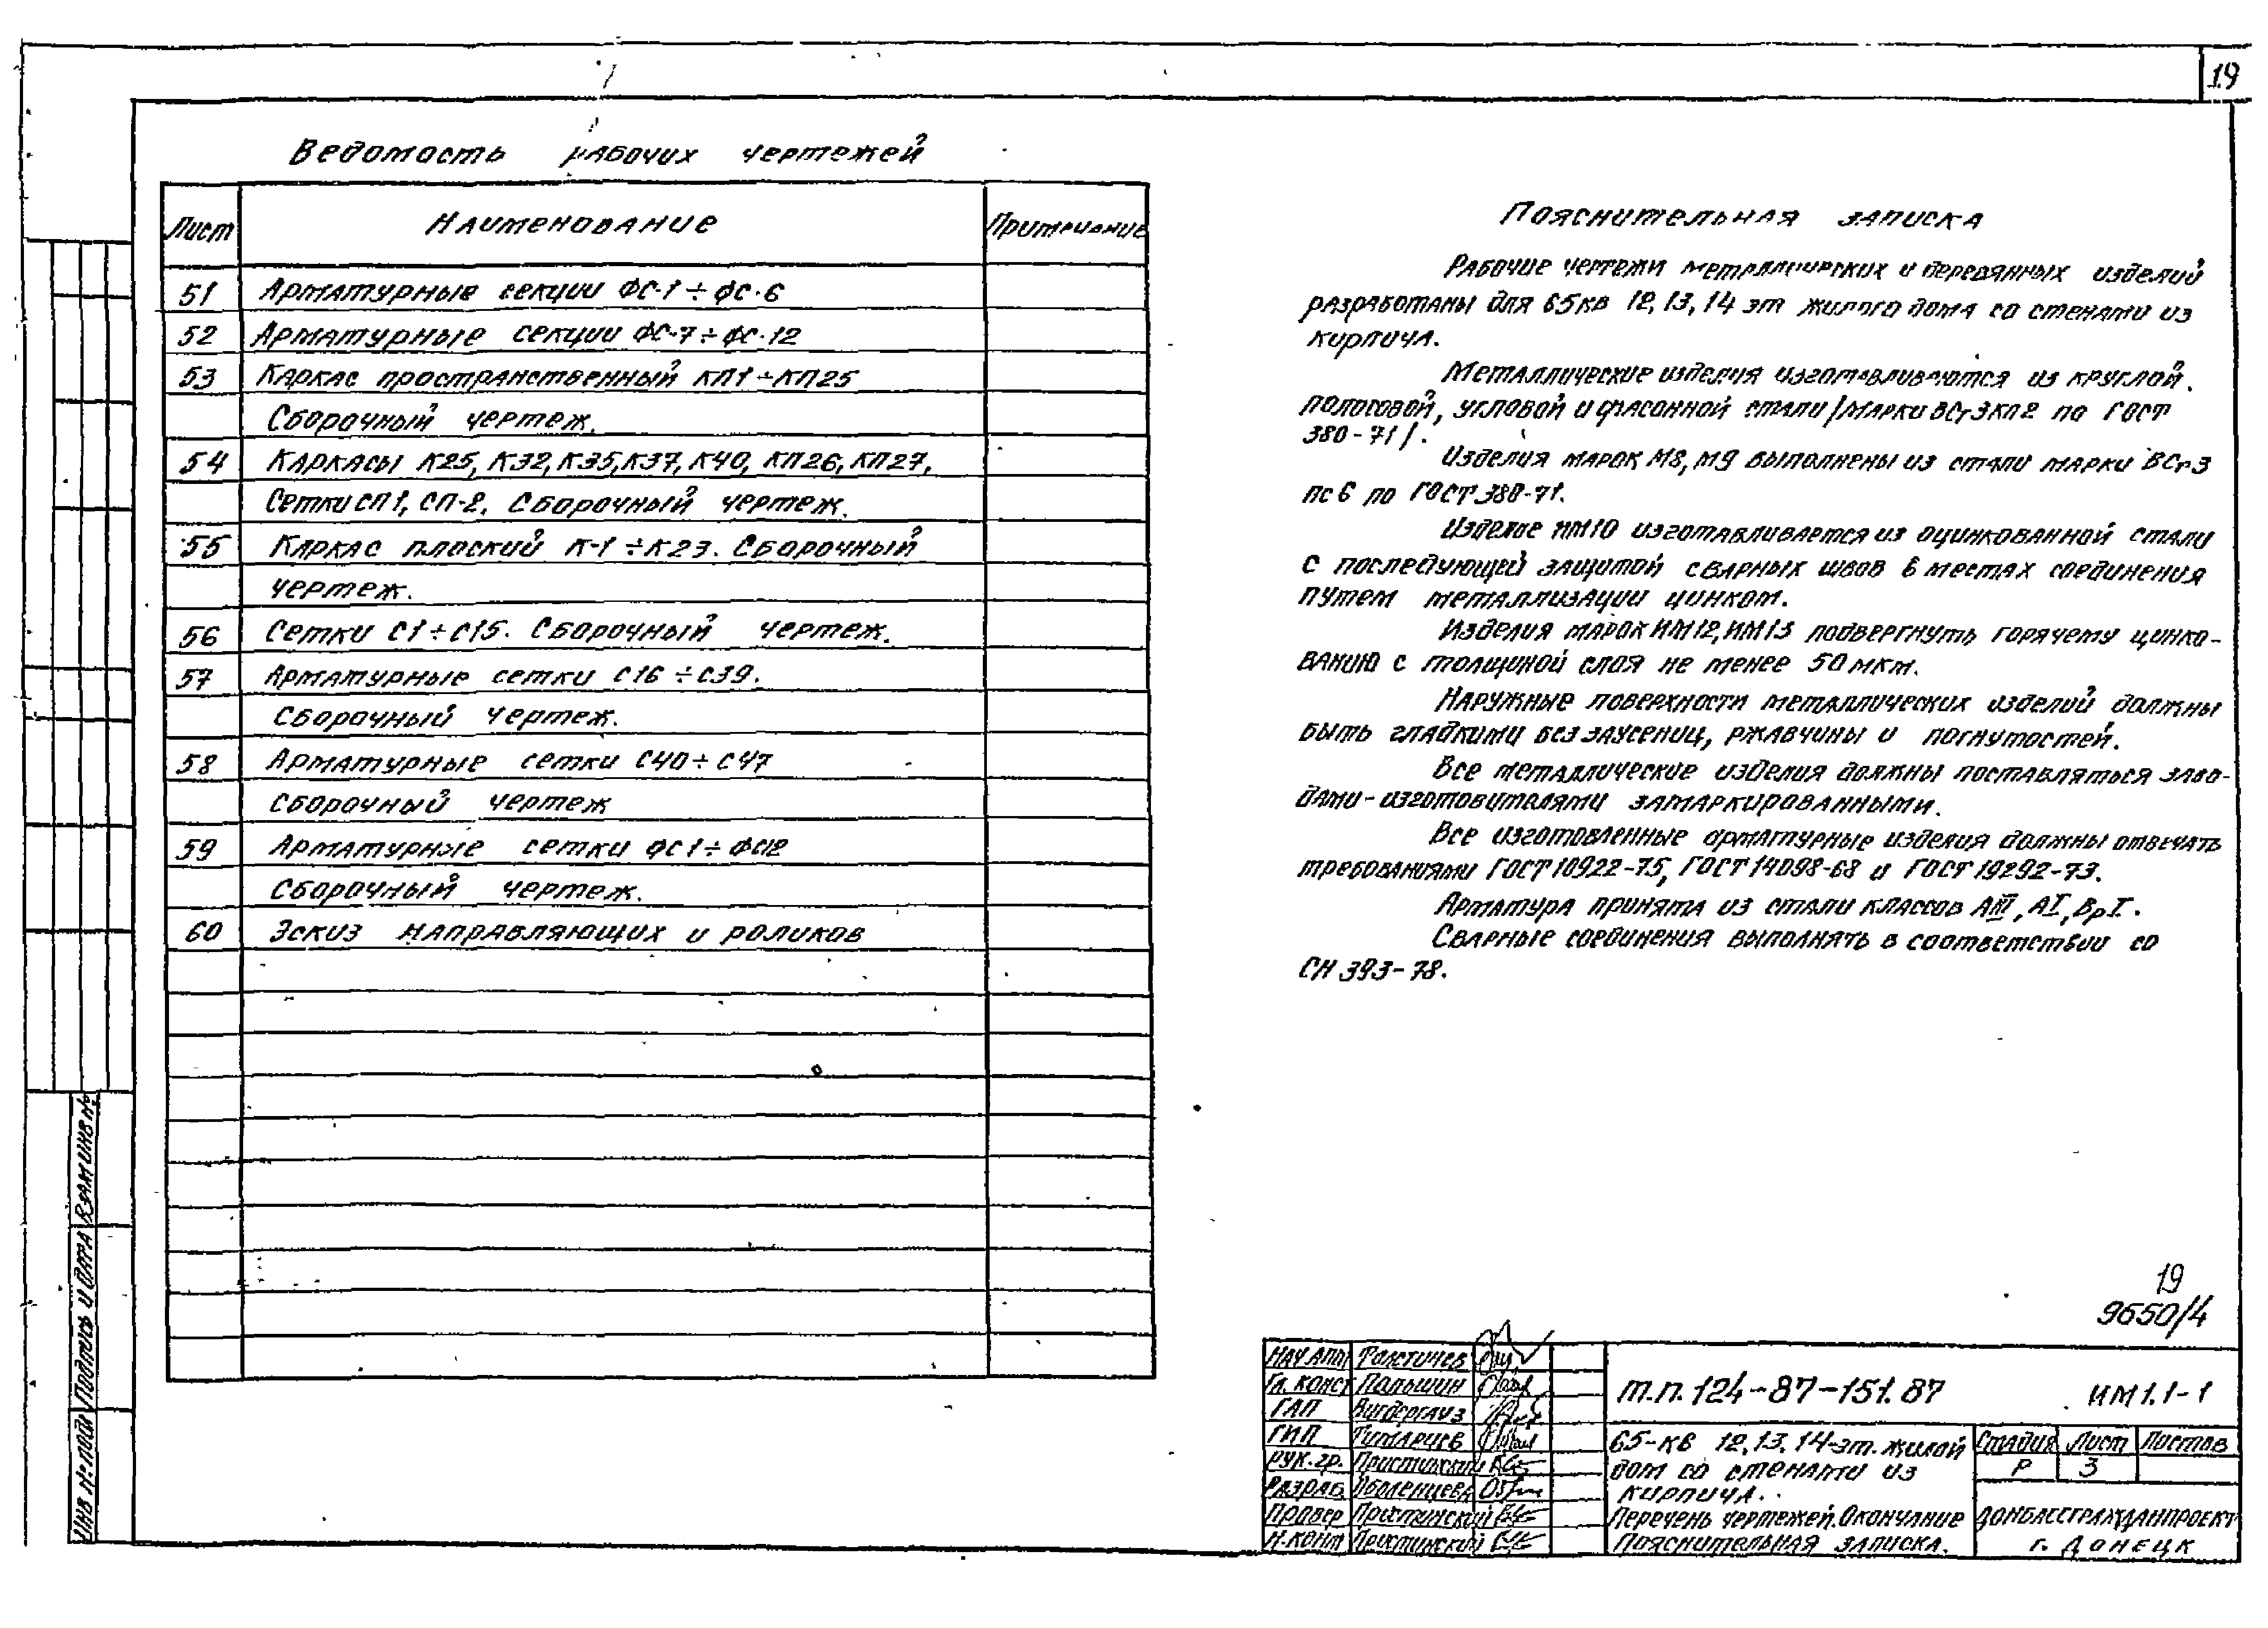 19
Ведомость рабочих чертежей
Лист Наименование Примечание
51 Арматурные секции ФС-1÷ФС-6
52 Арматурные секции ФС-7÷ФС-12
53 Каркас пространственный КП1÷КП25
Сборочный чертеж.
54 Каркасы К25, К32, К35, К37, К40, КП26, КП27,
Сетки СП1, СП-2. Сборочный чертеж.
55 Каркас плоский К-1÷К23. Сборочный
чертеж.
56 Сетки С1÷С15. Сборочный чертеж.
57 Арматурные сетки С16÷С39.
Сборочный чертеж.
58 Арматурные сетки С40÷С47
Сборочный чертеж
59 Арматурные сетки ФС1÷ФС12
Сборочный чертеж.
60 Эскиз направляющих и роликов
Пояснительная записка
Рабочие чертежи металлических и деревянных изделий
разработаны для 65кв 12,13,14 эт жилого дома со стенами из
кирпича.
Металлические изделия изготавливаются из круглой,
полосовой, угловой и фасонной стали /марки ВСт3кп2 по ГОСТ
380-71/.
Изделия марок М8, М9 выполнены из стали марки ВСт3
пс6 по ГОСТ 380-71.
Изделие ИМ10 изготавливается из оцинкованной стали
с последующей защитой сварных швов в местах соединения
путем металлизации цинком.
Изделия марок ИМ12, ИМ13 подвергнуть горячему цинко-
ванию с толщиной слоя не менее 50 мкм.
Наружные поверхности металлических изделий должны
быть гладкими без заусениц, ржавчины и погнутостей.
Все металлические изделия должны поставляться заво-
дами-изготовителями замаркированными.
Все изготовленные арматурные изделия должны отвечать
требованиями ГОСТ 10922-75, ГОСТ 14098-68 и ГОСТ 19292-73.
Арматура принята из стали классов АIII, АI, ВрI.
Сварные соединения выполнять в соответствии со
СН 393-78.
19
9650/4
Нач АПМ Толстичев
Гл. конст Паньшин
ГАП Вигдергауз
ГИП
Рук. гр. Пристинский
Разраб. Оболенцева
Провер Пристинский
Н.конт Пристинский
т.п. 124-87-151.87 ИМ1.1-1
65-кв 12,13,14-эт. жилой
дом со стенами из
кирпича.
Перечень чертежей. Окончание
Пояснительная записка.
Стадия Лист Листов
Р 3
ДОНБАССГРАЖДАНПРОЕКТ
г. Донецк
Инв № подл Подпись и дата Взам инв №